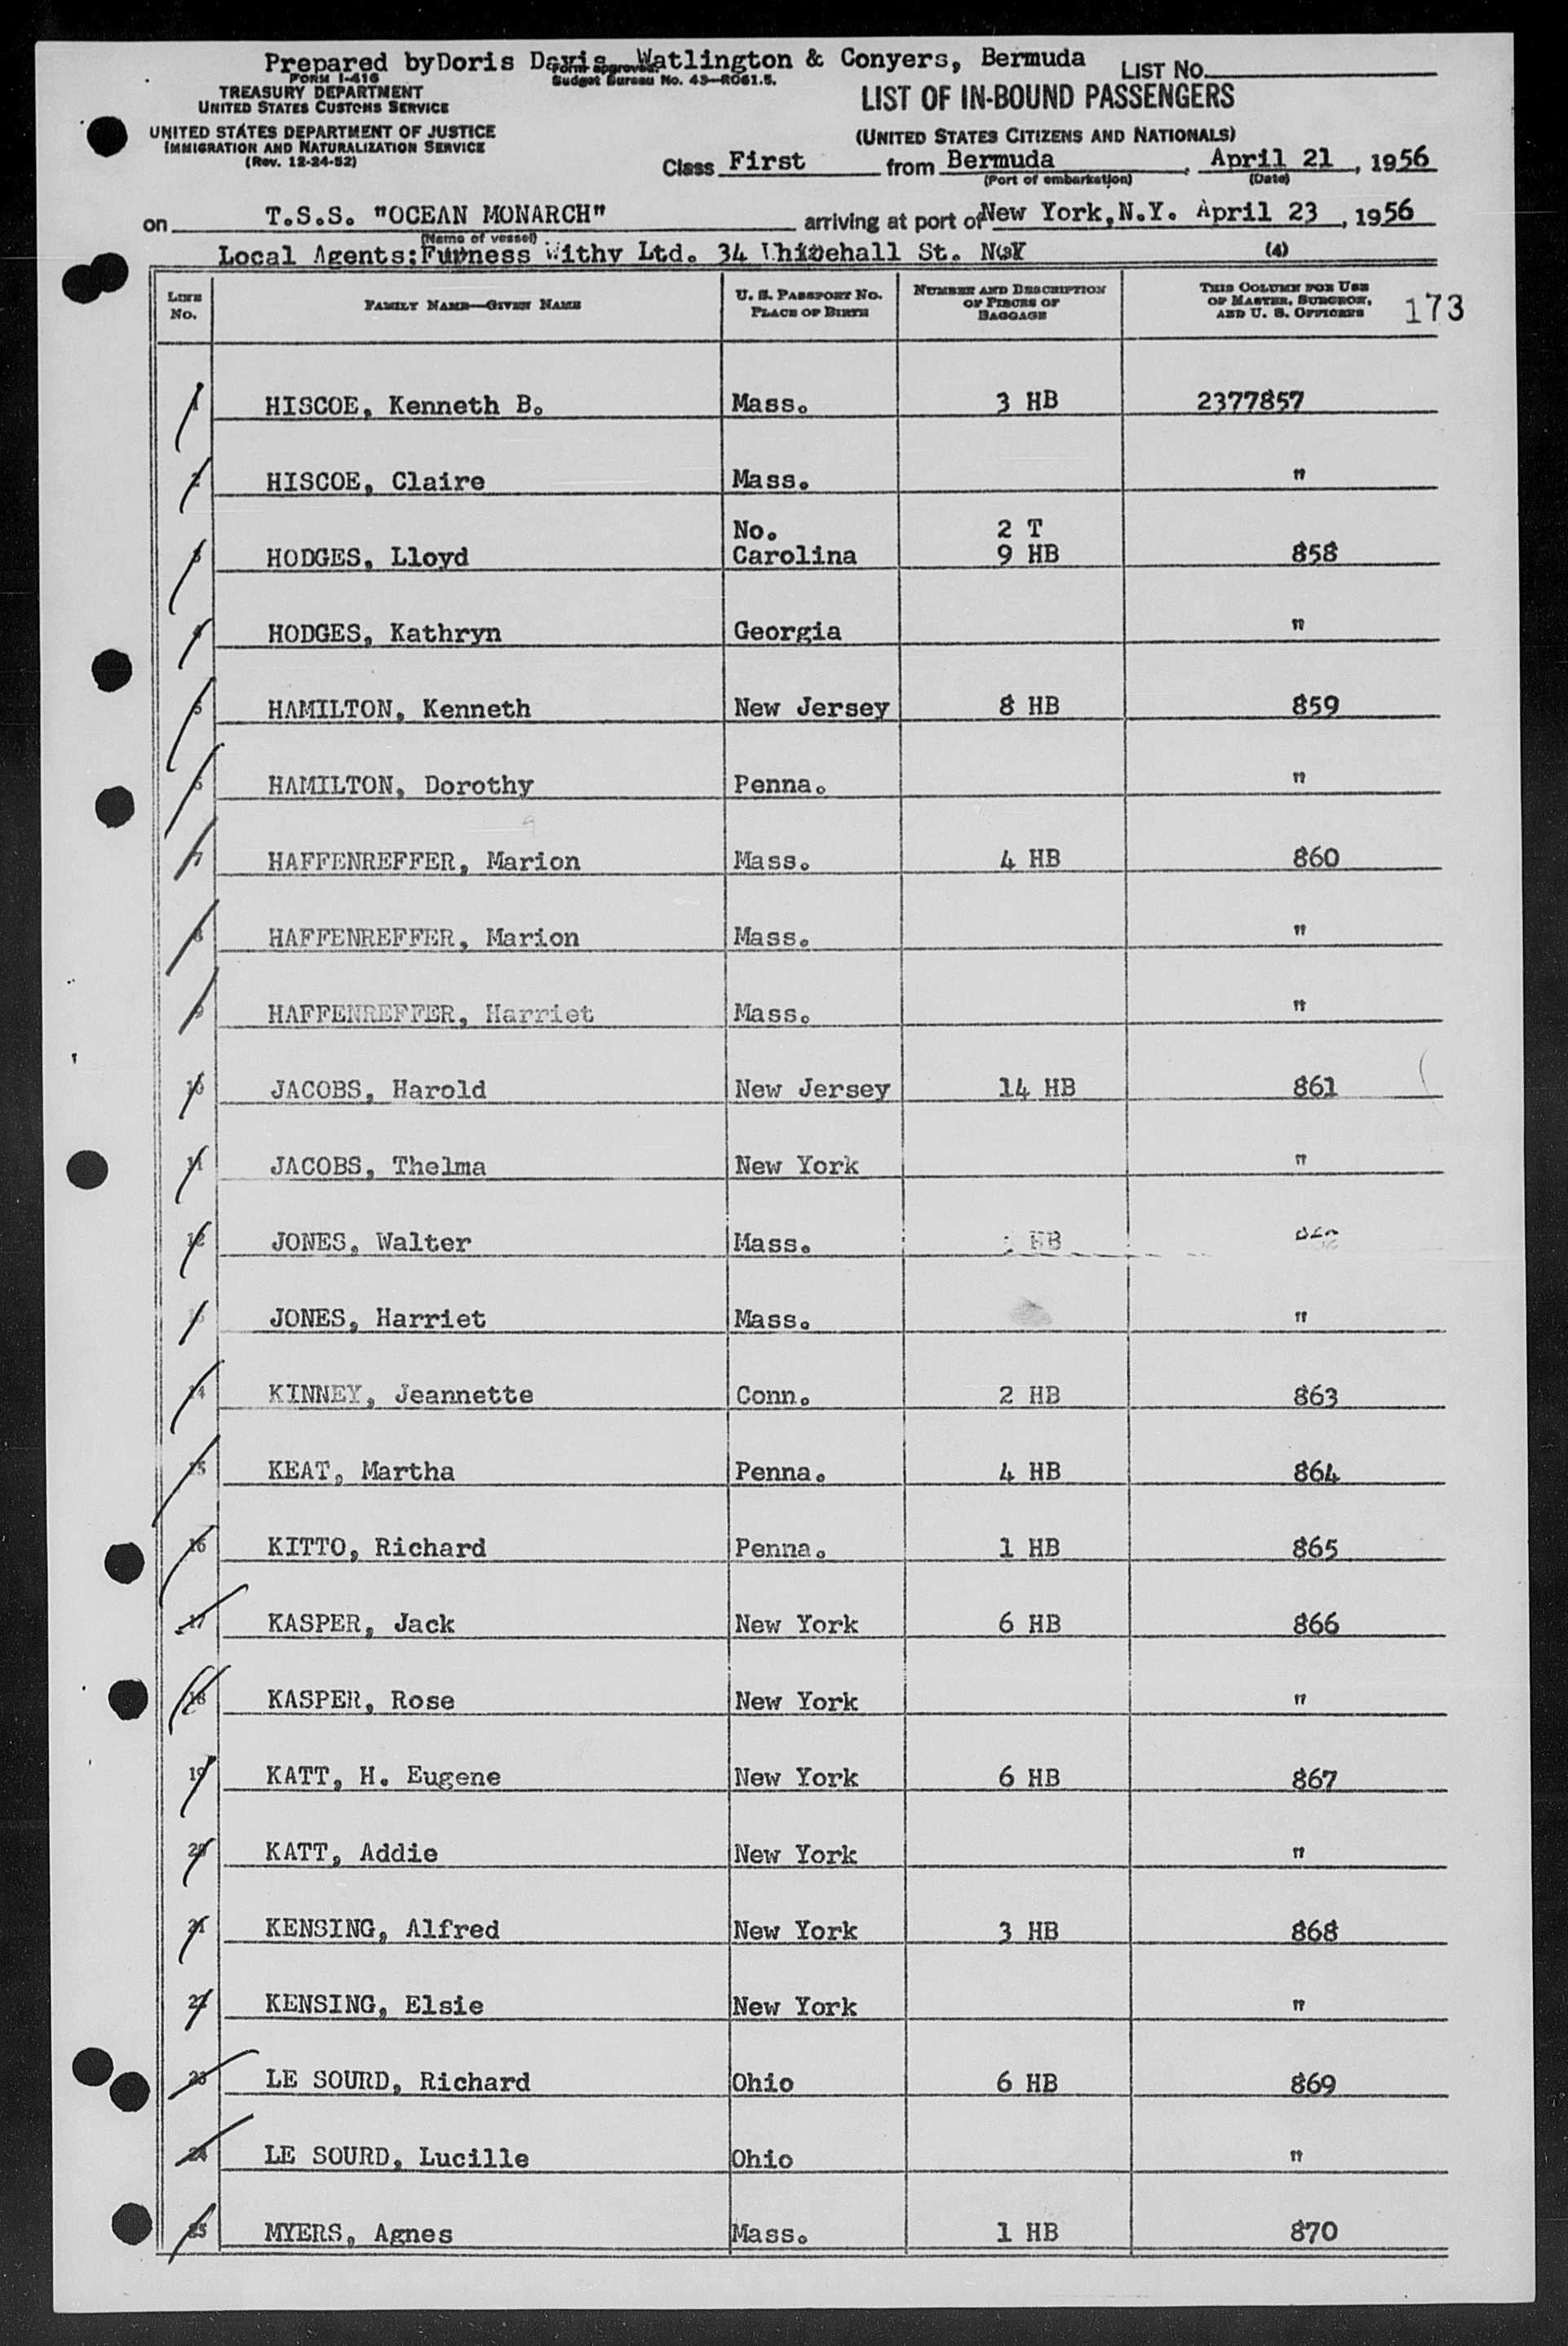 Prepared byDoris Davis, Watlington & Conyers, Bermuda
FORM I-416
Form approved.
Budget Bureau No. 43—R061.5.
LIST No.
TREASURY DEPARTMENT
UNITED STATES CUSTOMS SERVICE
LIST OF IN-BOUND PASSENGERS
UNITED STATES DEPARTMENT OF JUSTICE
IMMIGRATION AND NATURALIZATION SERVICE
(Rev. 12-24-52)
(UNITED STATES CITIZENS AND NATIONALS)
Class First from Bermuda, April 21, 1956
(Port of embarkation) (Date)
on T.S.S. "OCEAN MONARCH" arriving at port of New York, N.Y. April 23, 1956
(Name of vessel)
Local Agents: Furness Withy Ltd. 34 Whitehall St. (4)
LINE No. FAMILY NAME—GIVEN NAME U. S. PASSPORT NO. PLACE OF BIRTH NUMBER AND DESCRIPTION OF PIECES OF BAGGAGE THIS COLUMN FOR USE OF MASTER, SURGEON, AND U. S. OFFICERS 173
1 HISCOE, Kenneth B. Mass. 3 HB 2377857
2 HISCOE, Claire Mass. "
No. 2 T
3 HODGES, Lloyd Carolina 9 HB 858
4 HODGES, Kathryn Georgia "
5 HAMILTON, Kenneth New Jersey 8 HB 859
6 HAMILTON, Dorothy Penna. "
7 HAFFENREFFER, Marion Mass. 4 HB 860
8 HAFFENREFFER, Marion Mass. "
9 HAFFENREFFER, Harriet Mass. "
10 JACOBS, Harold New Jersey 14 HB 861
11 JACOBS, Thelma New York "
12 JONES, Walter Mass. HB
13 JONES, Harriet Mass. "
14 KINNEY, Jeannette Conn. 2 HB 863
15 KEAT, Martha Penna. 4 HB 864
16 KITTO, Richard Penna. 1 HB 865
17 KASPER, Jack New York 6 HB 866
18 KASPER, Rose New York "
19 KATT, H. Eugene New York 6 HB 867
20 KATT, Addie New York "
21 KENSING, Alfred New York 3 HB 868
22 KENSING, Elsie New York "
23 LE SOURD, Richard Ohio 6 HB 869
24 LE SOURD, Lucille Ohio "
25 MYERS, Agnes Mass. 1 HB 870